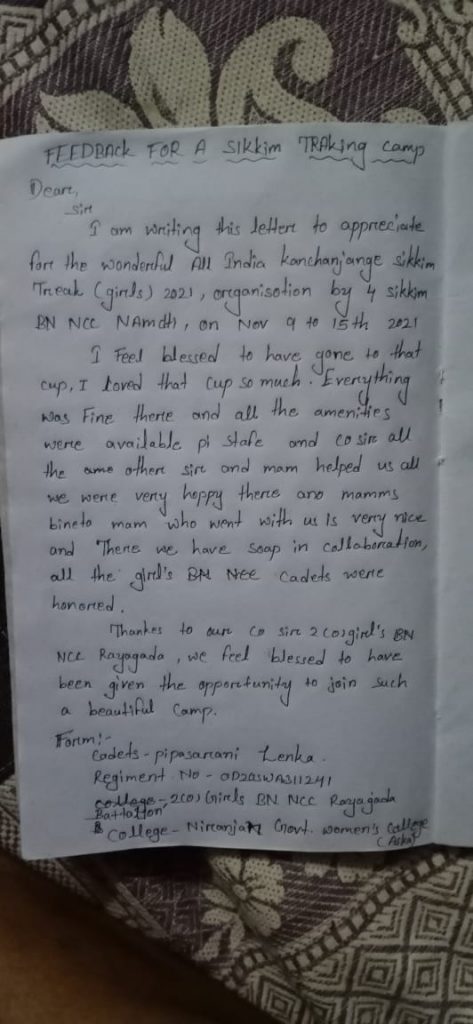 FEEDBACK FOR A SIKKIM TRAKing camp
Deare,
Sire
I am writing this lettere to appreciate
fore the wonderful All India kanchanjange sikkim
Treak (girels) 2021, oreganisotion by 4 sikkim
BN NCC NAmchi, on Nov 9 to 15th 2021
I Feel blessed to have gone to that
cup, I loved that cup so much. Everything
was Fine there and all the amenities
were available pi stafe and co sire all
the ame othere sire and mam helped us all
we were very heppy there and mamms
bineta mam who went with us Is very nice
and There we have soap in collaboration,
all the girel's BN Nce cadets were
honored.
Thankes to oure co sire 2(o) girel's BN
NCC Rayagada, we feel blessed to have
been given the opporetunity to join such
a beautiful camp.
Form:-
Cadets - pipasarani Lenka.
Regiment No - OD20SWA311241
2(o) Girels BN NCC Rayagada
Battalion
College - Niranjan Govt. women's college
(Aska)